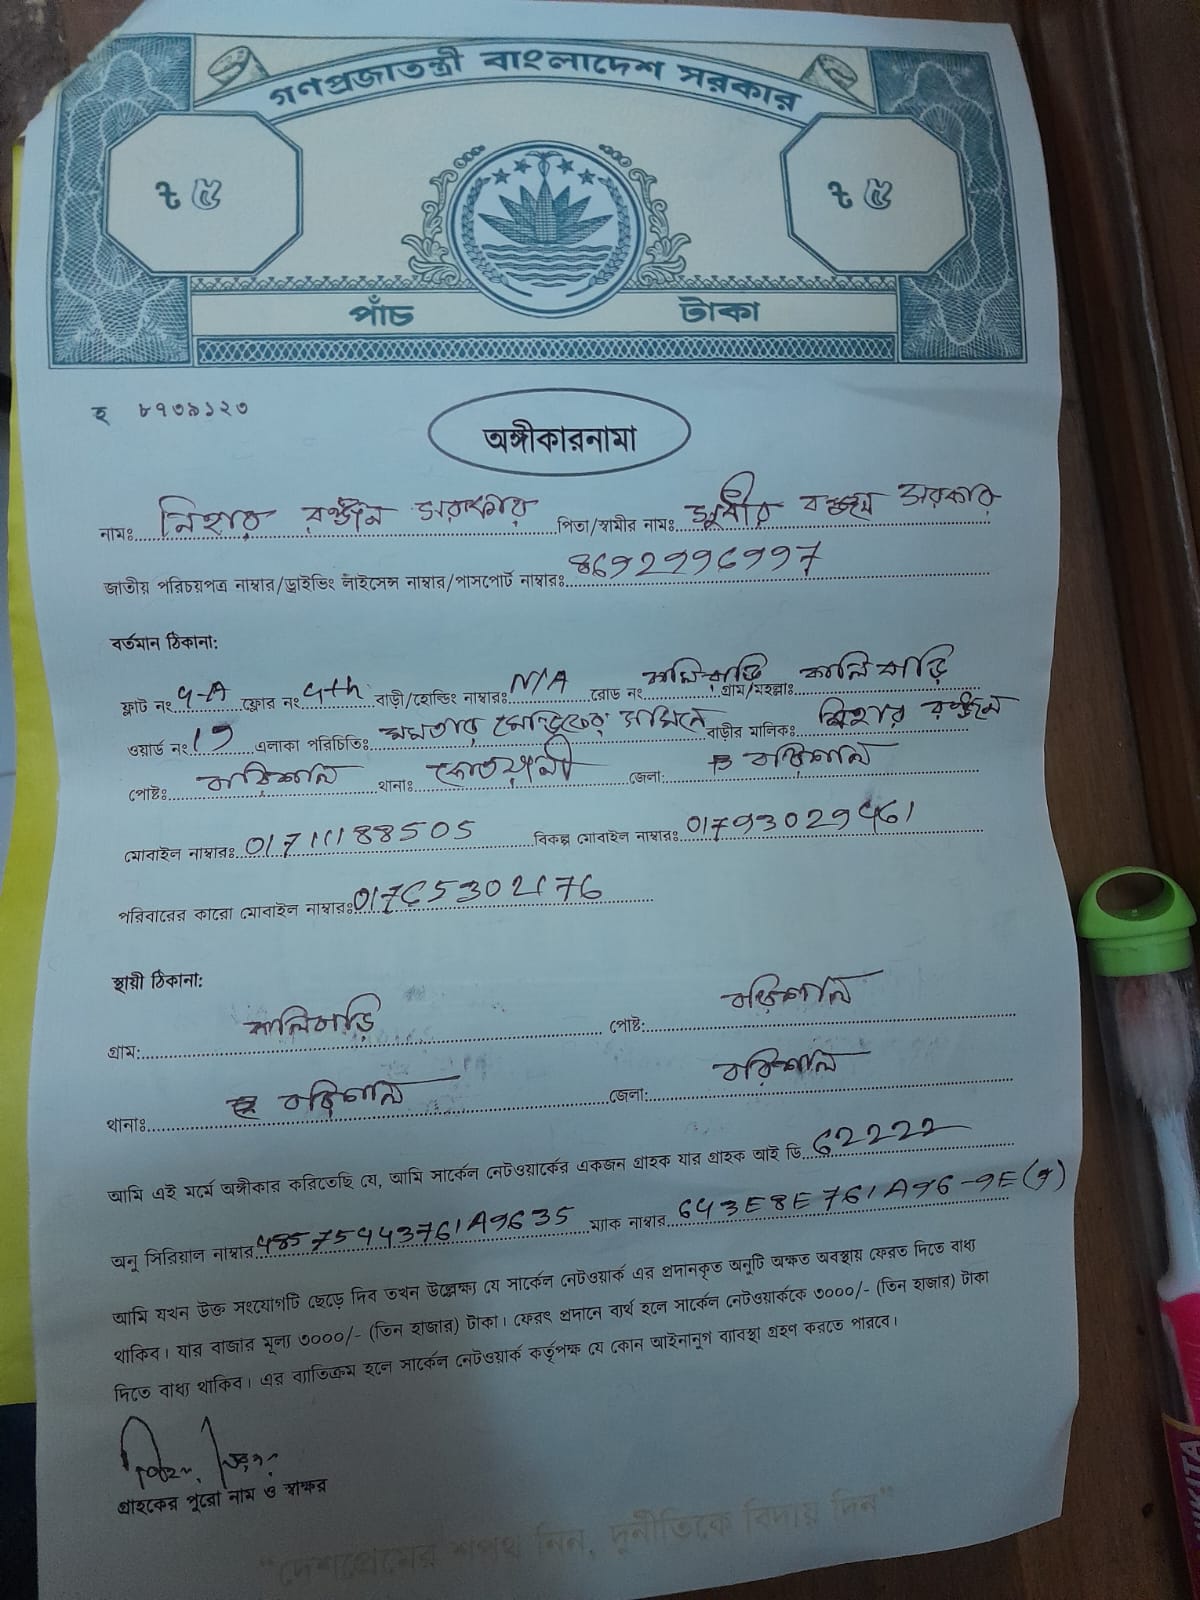 গণপ্রজাতন্ত্রী বাংলাদেশ সরকার
৳ ৫ ৳ ৫
পাঁচ টাকা
হ ৮৭৩৯১২৩
অঙ্গীকারনামা
নামঃ নিহার রঞ্জন সরকার পিতা/স্বামীর নামঃ সুধীর রঞ্জন সরকার
জাতীয় পরিচয়পত্র নাম্বার/ড্রাইভিং লাইসেন্স নাম্বার/পাসপোর্ট নাম্বারঃ
বর্তমান ঠিকানা:
ফ্লাট নং 4-A ফ্লোর নং 4th বাড়ী/হোল্ডিং নাম্বারঃ N/A রোড নং কালিবাড়ি গ্রাম/মহল্লাঃ কালিবাড়ি
ওয়ার্ড নং এলাকা পরিচিতিঃ মমতার সামনে বাড়ীর মালিকঃ নিহার রঞ্জন
পোষ্টঃ বরিশাল থানাঃ কোতয়ালী জেলা: বরিশাল
মোবাইল নাম্বারঃ 01711188505 বিকল্প মোবাইল নাম্বারঃ
পরিবারের কারো মোবাইল নাম্বারঃ
স্থায়ী ঠিকানা:
গ্রাম: কালিবাড়ি পোষ্ট: বরিশাল
থানাঃ বরিশাল জেলা: বরিশাল
আমি এই মর্মে অঙ্গীকার করিতেছি যে, আমি সার্কেল নেটওয়ার্কের একজন গ্রাহক যার গ্রাহক আই ডি 62222
অনু সিরিয়াল নাম্বার 48575443761A9635 ম্যাক নাম্বার 643E8E761A96-9E(9)
আমি যখন উক্ত সংযোগটি ছেড়ে দিব তখন উল্লেক্ষ্য যে সার্কেল নেটওয়ার্ক এর প্রদানকৃত অনুটি অক্ষত অবস্থায় ফেরত দিতে বাধ্য
থাকিব। যার বাজার মূল্য ৩০০০/- (তিন হাজার) টাকা। ফেরৎ প্রদানে ব্যর্থ হলে সার্কেল নেটওয়ার্ককে ৩০০০/- (তিন হাজার) টাকা
দিতে বাধ্য থাকিব। এর ব্যাতিক্রম হলে সার্কেল নেটওয়ার্ক কর্তৃপক্ষ যে কোন আইনানুগ ব্যাবস্থা গ্রহণ করতে পারবে।
গ্রাহকের পুরো নাম ও স্বাক্ষর
“দেশপ্রেমের শপথ নিন, দুর্নীতিকে বিদায় দিন”